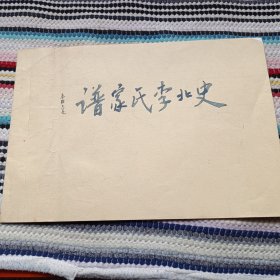 史北李氏家谱